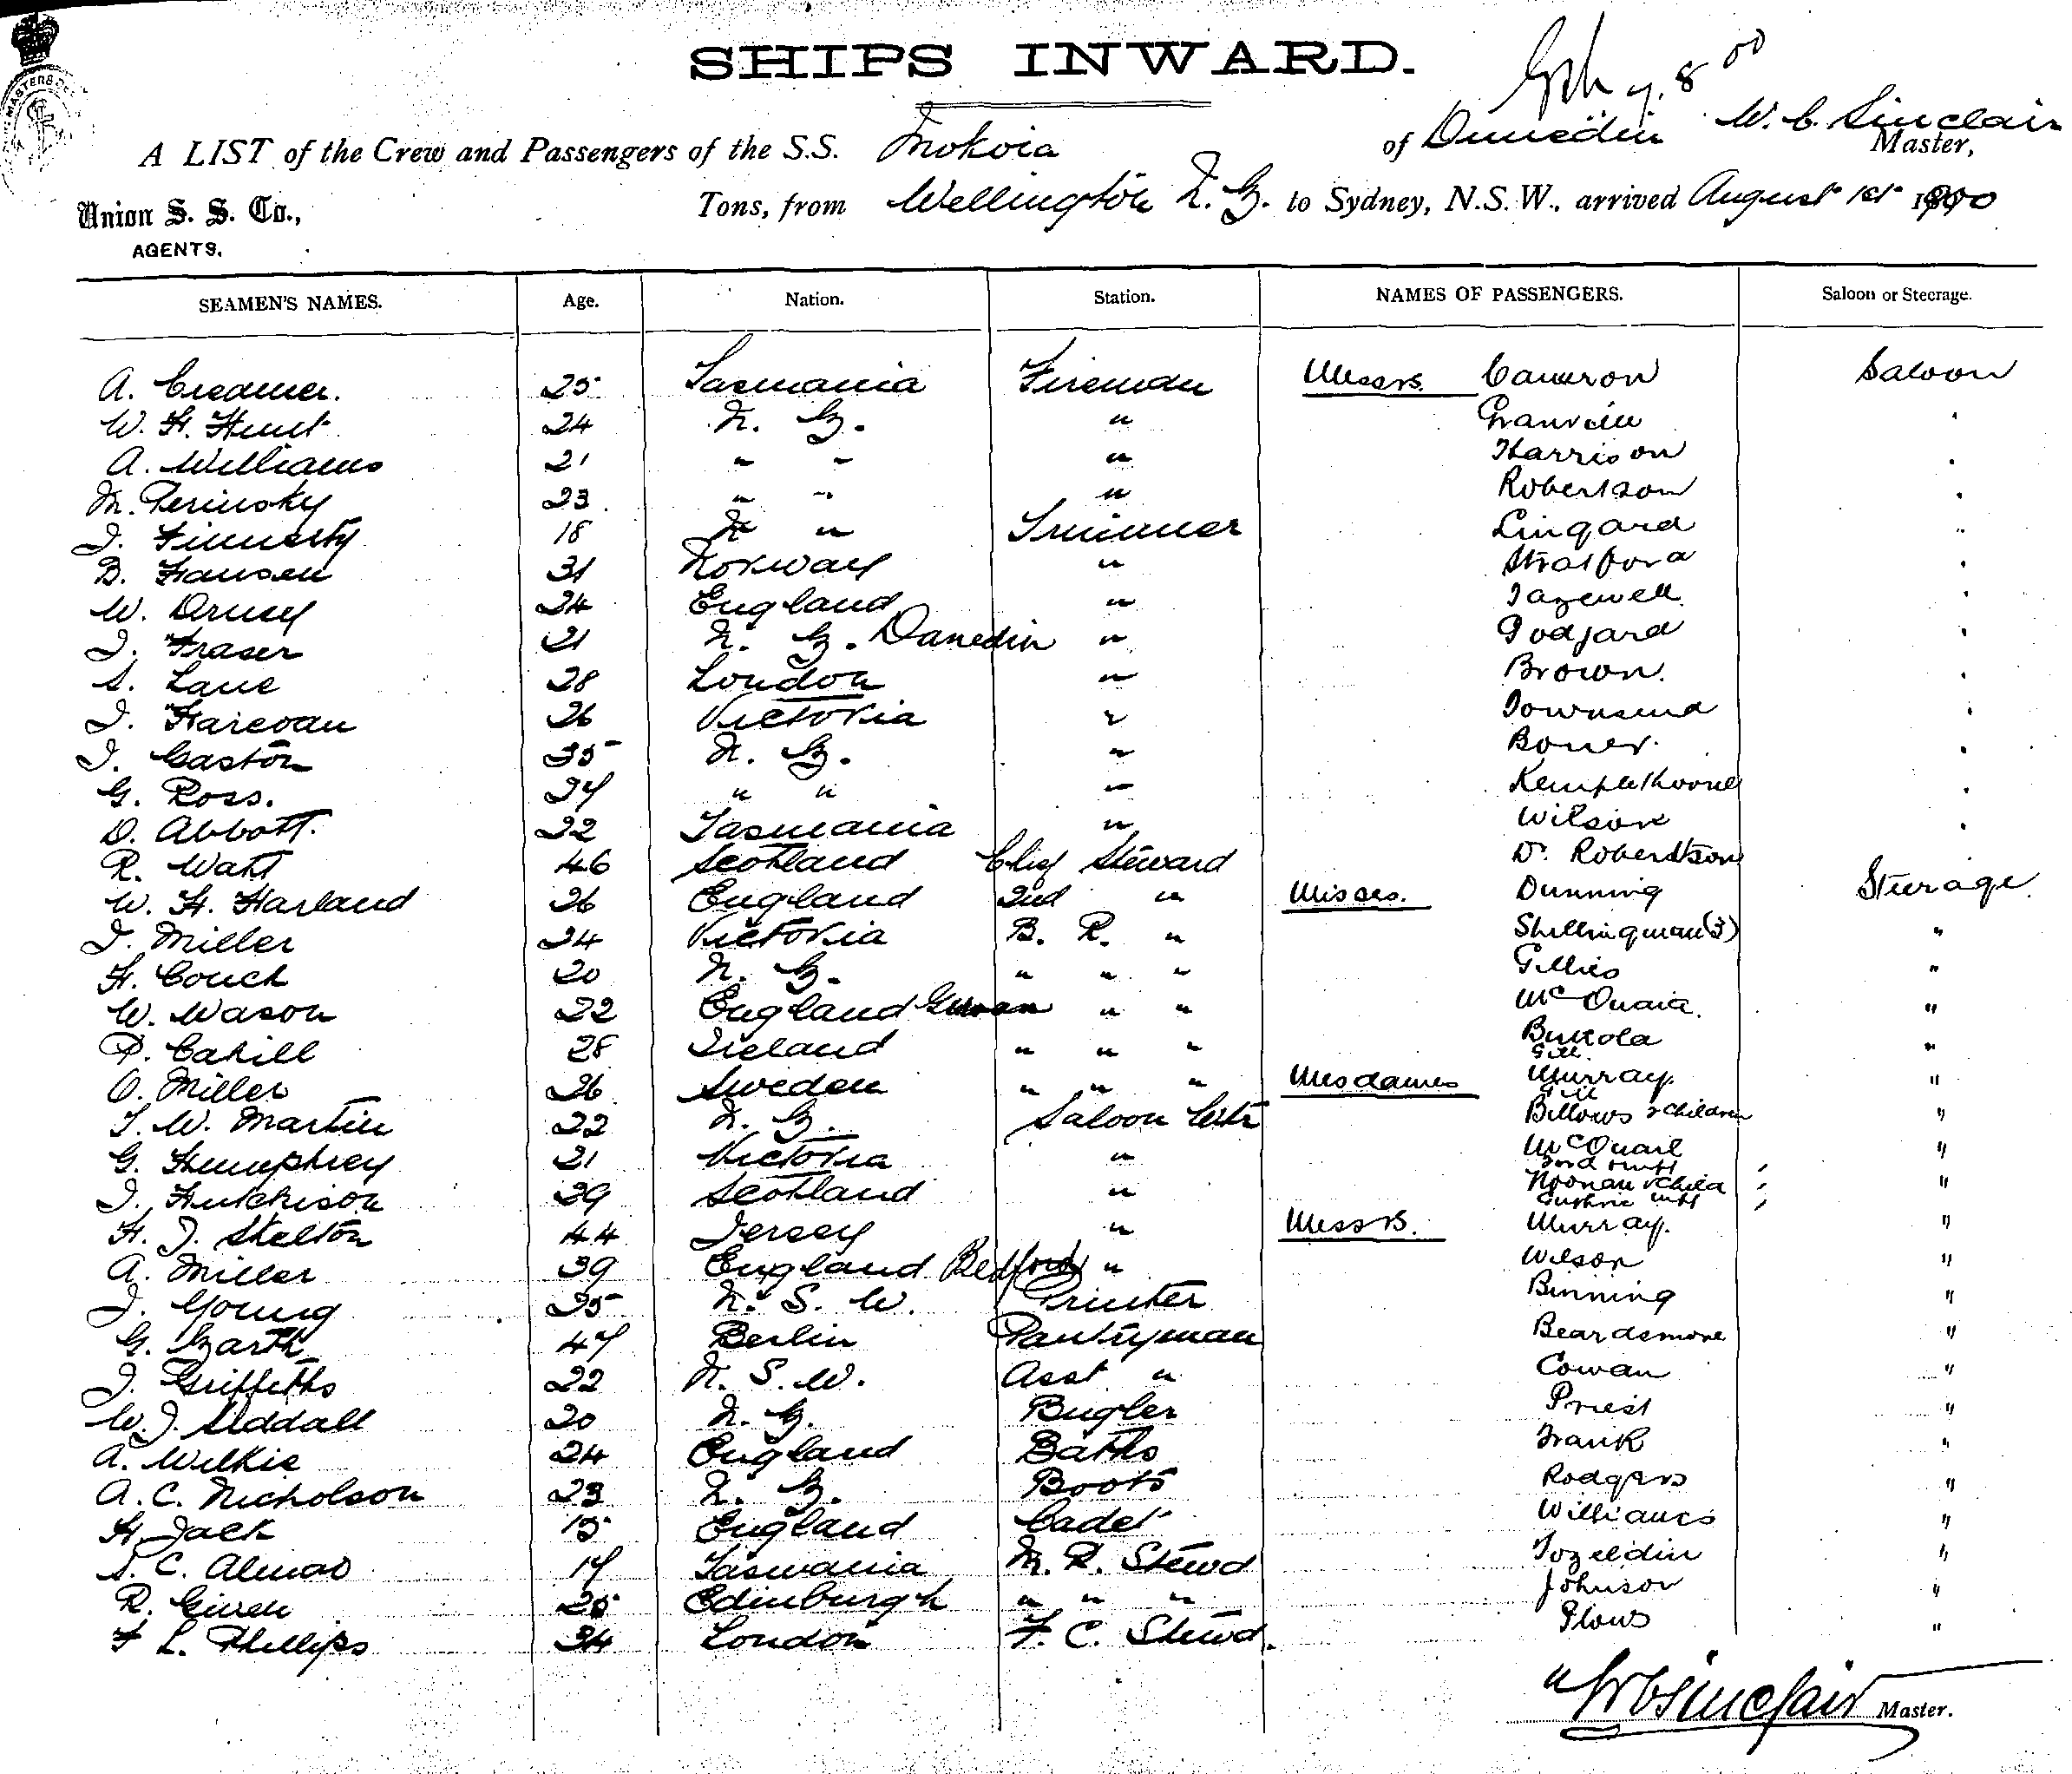 SHIPS INWARD.
A LIST of the Crew and Passengers of the S.S. Mokoia of Dunedin W. C. Sinclair Master,
Union S. S. Co., Tons, from Wellington N. Z. to Sydney, N.S.W., arrived August 1st 1900
AGENTS.
SEAMEN'S NAMES. Age. Nation. Station. NAMES OF PASSENGERS. Saloon or Steerage.
A. Creamer. 25 Tasmania Fireman Messrs. Cameron Saloon
W. H. Hunt 24 N. Z. " Granville "
A. Williams 21 " " " Harrison "
M. Perinsky 23 " " " Robertson "
J. Finnerty 18 N " Trimmer Lingard "
B. Hansen 31 Norway " Stratford "
W. Drury 24 England " Tazewell "
J. Fraser 21 N. Z. Dunedin " Godfard "
S. Lane 28 London " Brown. "
J. 26 Victoria " Townsend "
J. Caston 35 N. Z. " "
G. Ross. 27 " " " Kemplethorne "
D. Abbott. 22 Tasmania " Wilson "
R. Watt 46 Scotland Chief Steward Dr. Robertson
W. H. Harland 26 England 2nd " Misses. Dunning Steerage
J. Miller 24 Victoria B. R. " Shillingman (3) "
H. Couch 20 N. Z. " " " Gillies "
W. Wason 22 England " " "
P. Cahill 28 Ireland " " " "
Gill
O. Miller 26 Sweden " " " Mesdames Murray. "
Gill
T. W. Martin 22 N. Z. Saloon Billows & Children "
G. Humphrey 21 Victoria " McQuail "
J. Hutchison 29 Scotland " Noonan & Child "
Guthrie
H. J. Skelton 44 Jersey " Messrs. Murray. "
A. Miller 39 England Bedford " Wilson "
J. Young 25 N. S. W. Printer Binning "
G. Barth 47 Berlin Pantryman Beardsmore "
J. Griffiths 22 N. S. W. Asst " Cowan "
W. J. Siddall 20 N. Z. Bugler Priest "
A. Wilkie 24 England Baths Frank "
A. C. Nicholson 23 N. Z. Boots Rodgers "
H. Jack 15 England Cadet Williams "
S. C. Almao 17 Tasmania M. R. Stewd Tozeldin "
R. Given 25 Edinburgh " " " Johnson "
F L. Phillips 34 London F. C. Stewd. Plows "
W C Sinclair Master.